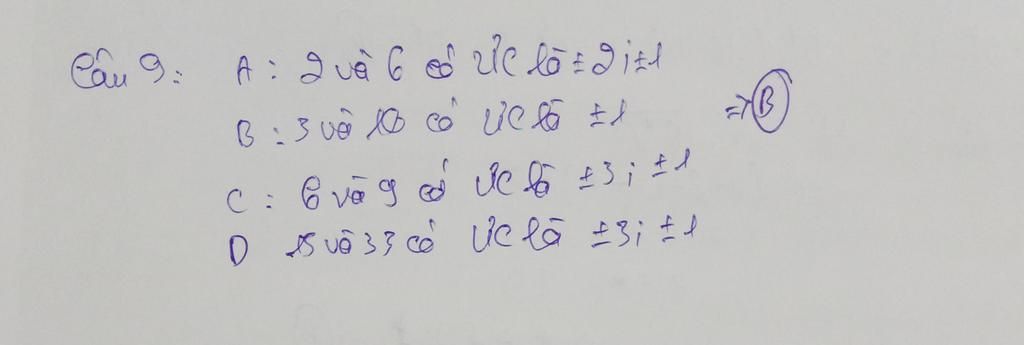 Câu 9: A: 2 và 6 có ƯC là ±2; ±1
B: 3 và 10 có ƯC là ±1 => B
C: 6 và 9 có ƯC là ±3; ±1
D 15 và 33 có ƯC là ±3; ±1